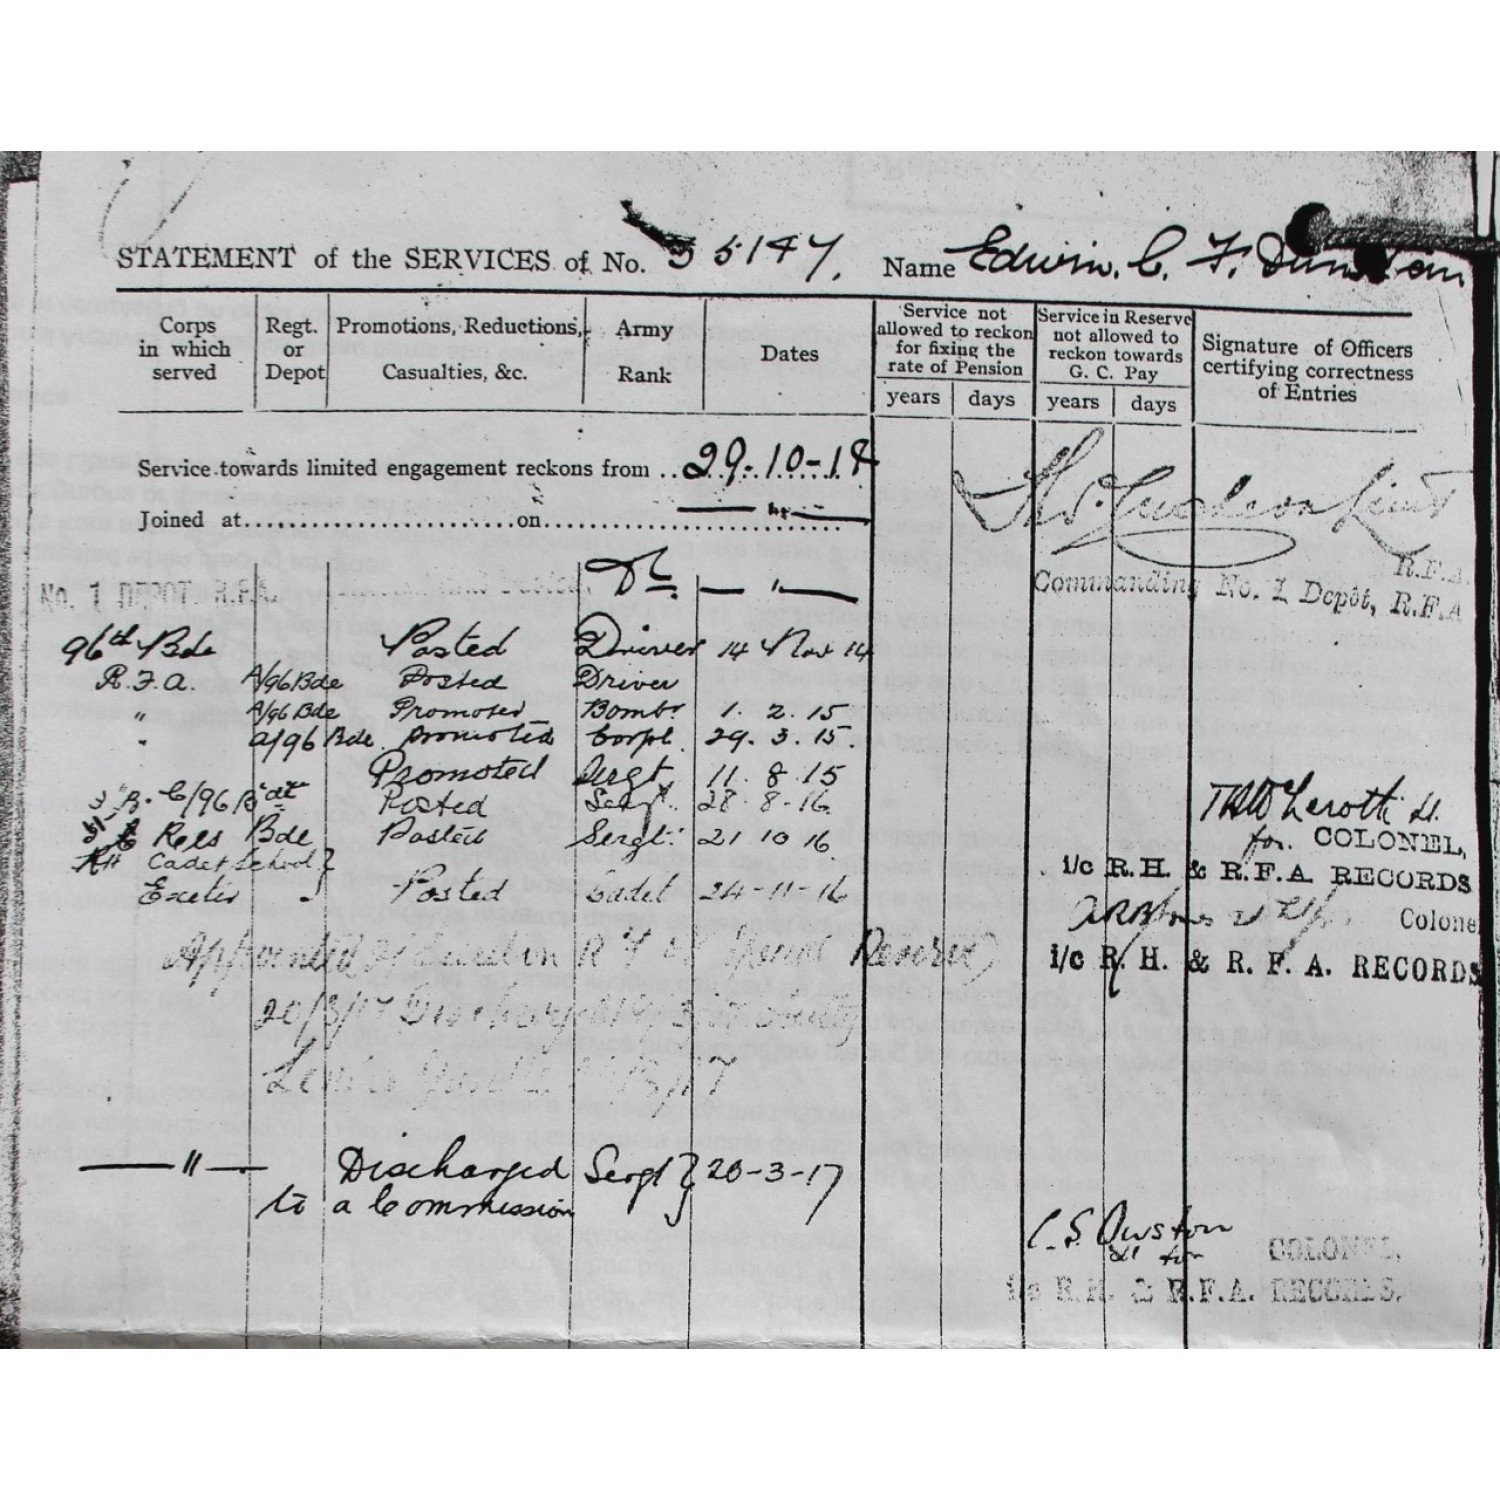 STATEMENT of the SERVICES of No. 55147. Name Edwin. C. F.
Corps in which served
Regt. or Depot
Promotions, Reductions, Casualties, &c.
Army Rank
Dates
Service not allowed to reckon for fixing the rate of Pension
Service in Reserve not allowed to reckon towards G. C. Pay
Signature of Officers certifying correctness of Entries
years days years days
Service towards limited engagement reckons from .. 29-10-14
Joined at........................on..............................
No. 1 DEPOT. R.F.A. Dr — " —
R.F.A.
Commanding No. 1 Depôt, R.F.A
96th Bde Posted Driver 14 Nov 14
R.F.A. A/96 Bde Posted Driver
" A/96 Bde Promoted Bombr 1. 2. 15
" a/96 Bde. promoted Corpl. 29. 3. 15.
Promoted Sergt, 11. 8. 15
C/96 Posted Sergt. 28-8-16
Res Bde Posted Sergt. 21 10 16
for. COLONEL,
RH Cadet School }
i/c R.H. & R.F.A RECORDS
Exeter Posted Cadet 24-11-16
Colone
Appointed R F A Special Reserve
i/c R. H. & R. F. A. RECORDS
20/3/17
— " — Discharged Sergt } 20-3-17
to a Commission
C. S. Owston
COLONEL,
i/c R.H. & R.F.A. RECORDS.